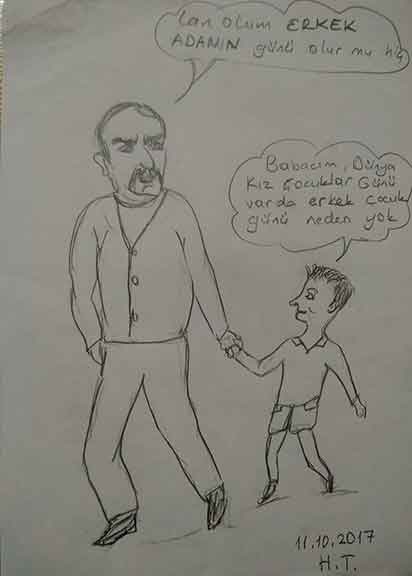 Lan olum ERKEK
ADAMIN günü olur mu hiç
Babacım, Dünya
Kız çocuklar Günü
varda erkek çocuk
günü neden yok
11.10.2017
H.T.